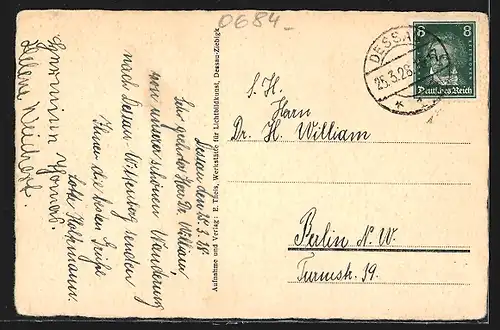 0684-
DESSAU
25.3.28
6 8
Deutsches Reich
S. H.
Herrn
Dr. H. William
Berlin N. W.
Turmstr. 19.
Aufnahme und Verlag: E. Theis, Werkstätte für Lichtbildkunst, Dessau-Ziebigk
Dessau den 25.3.28
Sehr geehrter Herr Dr. William,
von unserer schönen Wanderung
nach Dessau-Wittenberg senden
Ihnen die besten Grüße
Lotte
Hermann Thomas.